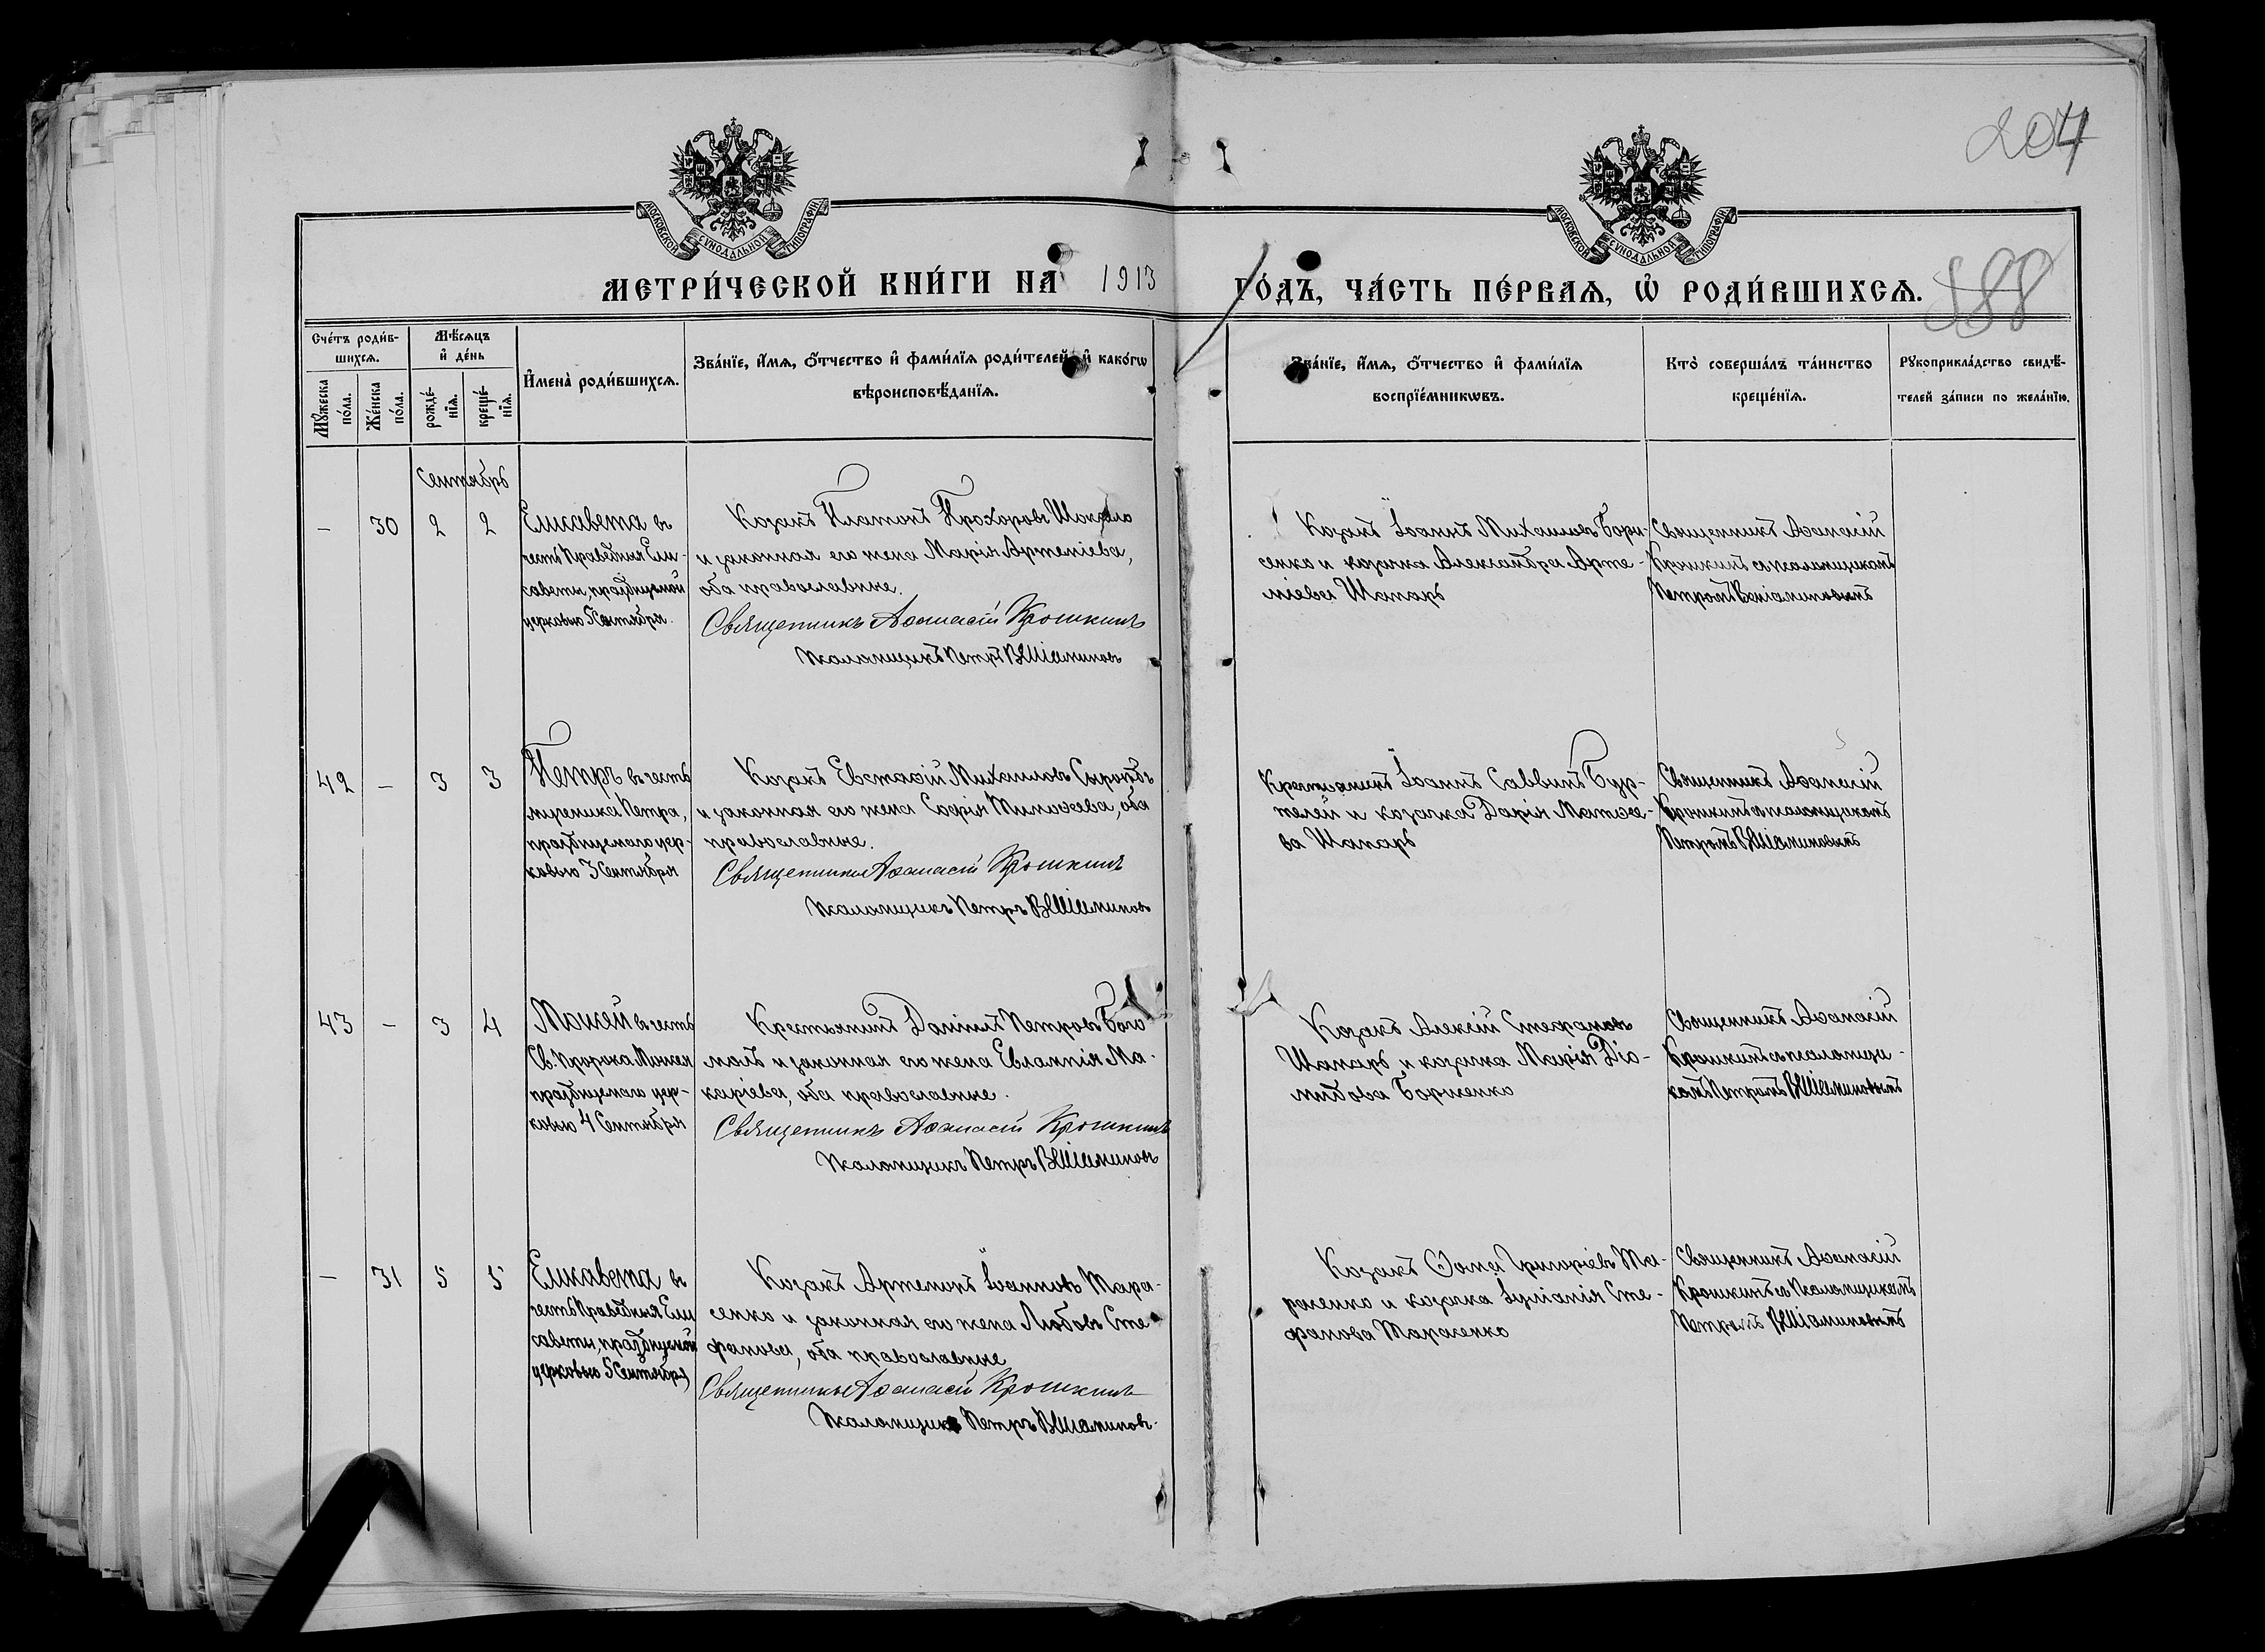 204
МОСКОВСКОЙ СѴНОДАЛЬНОЙ ТИПОГРАФІИ
МОСКОВСКОЙ СѴНОДАЛЬНОЙ ТИПОГРАФІИ
МЕТРИ́ЧЕСКОЙ КНИ́ГИ НА̀ 1913 ГО́ДЪ, ЧА́СТЬ ПЕ́РВАЯ, Ѡ҆ РОДИ́ВШИХСЯ.
188
Сче́тъ роди́в-
шихся.
Мѣ́сяцъ
и҆ де́нь
Мꙋ́жеска
по́ла.
Же́нска
по́ла.
рожде́-
нїя.
креще́-
нїя.
И҆мена̀ роди́вшихся.
Зва́нїе, и҆́мя, ѻ҆́тчество и҆ фами́лїя роди́телей, и҆ како́гѡ
вѣроисповѣ́данїя.
Зва́нїе, и҆́мя, ѻ҆́тчество и҆ фами́лїя
воспрїе́мникѡвъ.
Кто̀ соверша́лъ та́инство
креще́нїя.
Рꙋкоприкла́дство свидѣ́-
телей за́писи по жела́нїю.
Сентябрь
— 30 2 2
Елисавета въ
честь Праведныя Ели-
саветы, празднуемой
церковью 5 Сентября.
Козакъ Платонъ Прохоровъ
и законная его жена Марія Артеміева,
оба православные.
Священникъ Аѳанасій Крошкинъ
Псаломщикъ Петръ Веніаминовъ
Козакъ Іоаннъ Михаиловъ Бори-
сенко и козачка Александра Арте-
міева Шапарь
Священникъ Аѳанасій
Крошкинъ съ псаломщикомъ
Петромъ Веніаминовымъ
42 — 3 3
Петръ въ честь
мученика Петра,
празднуемаго цер-
ковью 3 Сентября
Козакъ Евстаѳій Михаиловъ
и законная его жена Софія Тимоѳеева, оба
православные.
Священникъ Аѳанасій Крошкинъ
Псаломщикъ Петръ Веніаминовъ
Крестьянинъ Іоаннъ Саввинъ Бур-
телей и козачка Дарія Матѳее-
ва Шапарь
Священникъ Аѳанасій
Крошкинъ съ псаломщикомъ
Петромъ Веніаминовымъ
43 — 3 4
Моисей въ честь
Св. Пророка Моисея
празднуемаго цер-
ковью 4 Сентября
Крестьянинъ Даніилъ Петровъ Бого
молъ и законная его жена Евлампія Ма-
каріева, оба православные.
Священникъ Аѳанасій Крошкинъ
Псаломщикъ Петръ Веніаминовъ
Козакъ Алексій Стефановъ
Шапарь и козачка Марія Діо-
мидова Борисенко
Священникъ Аѳанасій
Крошкинъ съ псаломщи-
комъ Петромъ Веніаминовымъ
— 31 5 5
Елисавета въ
честь Праведныя Ели
саветы, празднуемой
церковью 5 Сентября
Козакъ Артемонъ Іоанновъ Тара-
сенко и законная его жена Любовь Сте
фанова, оба православные
Священникъ Аѳанасій Крошкинъ
Псаломщикъ Петръ Веніаминовъ.
Козакъ Ѳома Григоріевъ Та-
расенко и козачка Іуліанія Сте-
фанова Тарасенко
Священникъ Аѳанасій
Крошкинъ съ Псаломщикомъ
Петромъ Веніаминовымъ